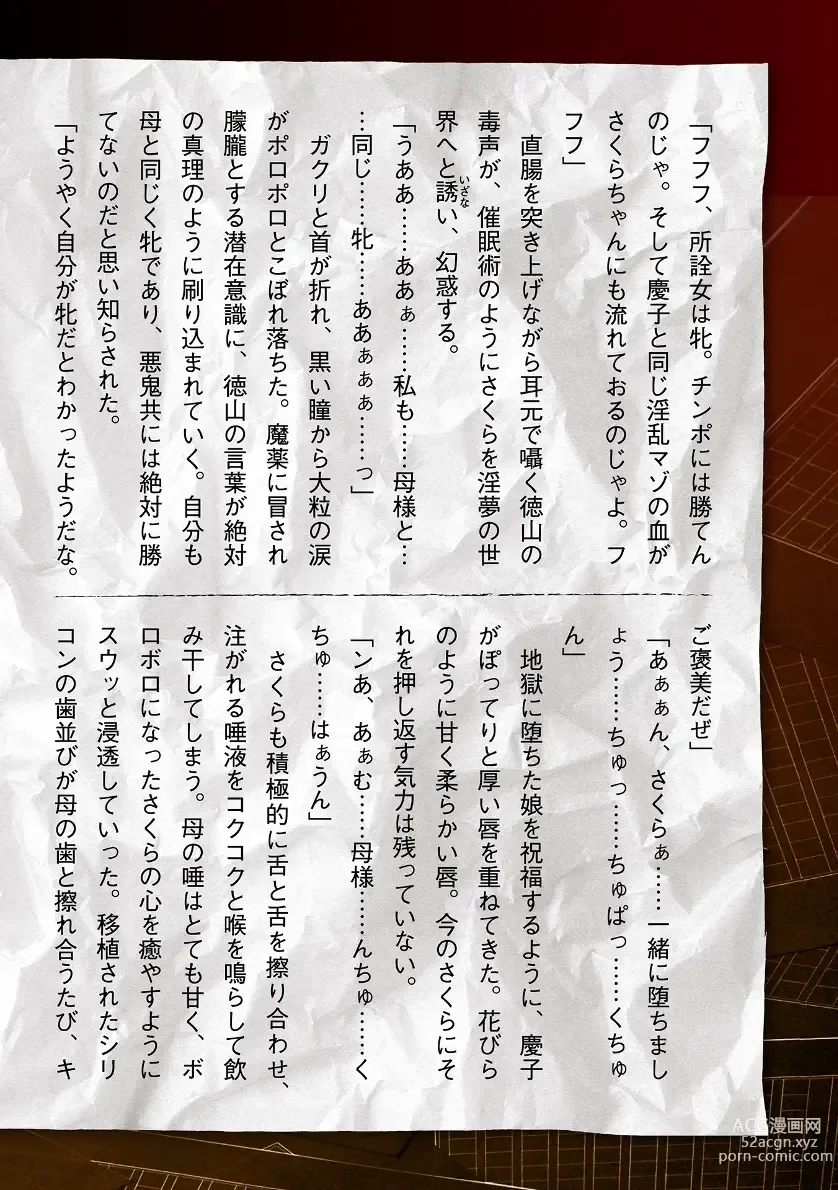 「フフフ、所詮女は牝。チンポには勝てん
のじゃ。そして慶子と同じ淫乱マゾの血が
さくらちゃんにも流れておるのじゃよ。フ
フフ」
直腸を突き上げながら耳元で囁く徳山の
毒声が、催眠術のようにさくらを淫夢の世
界へと誘い、幻惑する。
いざな
「うああ……ああぁ……私も……母様と…
…同じ……牝……ああぁぁぁ……っ」
ガクリと首が折れ、黒い瞳から大粒の涙
がポロポロとこぼれ落ちた。魔薬に冒され
朦朧とする潜在意識に、徳山の言葉が絶対
の真理のように刷り込まれていく。自分も
母と同じく牝であり、悪鬼共には絶対に勝
てないのだと思い知らされた。
「ようやく自分が牝だとわかったようだな。
ご褒美だぜ」
「あぁぁん、さくらぁ……一緒に堕ちまし
ょう……ちゅっ……ちゅぱっ……くちゅ
ん」
地獄に堕ちた娘を祝福するように、慶子
がぽってりと厚い唇を重ねてきた。花びら
のように甘く柔らかい唇。今のさくらにそ
れを押し返す気力は残っていない。
「ンあ、あぁむ……母様……んちゅ……く
ちゅ……はぁうん」
さくらも積極的に舌と舌を擦り合わせ、
注がれる唾液をコクコクと喉を鳴らして飲
み干してしまう。母の唾はとても甘く、ボ
ロボロになったさくらの心を癒やすように
スウッと浸透していった。移植されたシリ
コンの歯並びが母の歯と擦れ合うたび、キ
ACG漫画网
52acgn.xyz
porn-comic.com